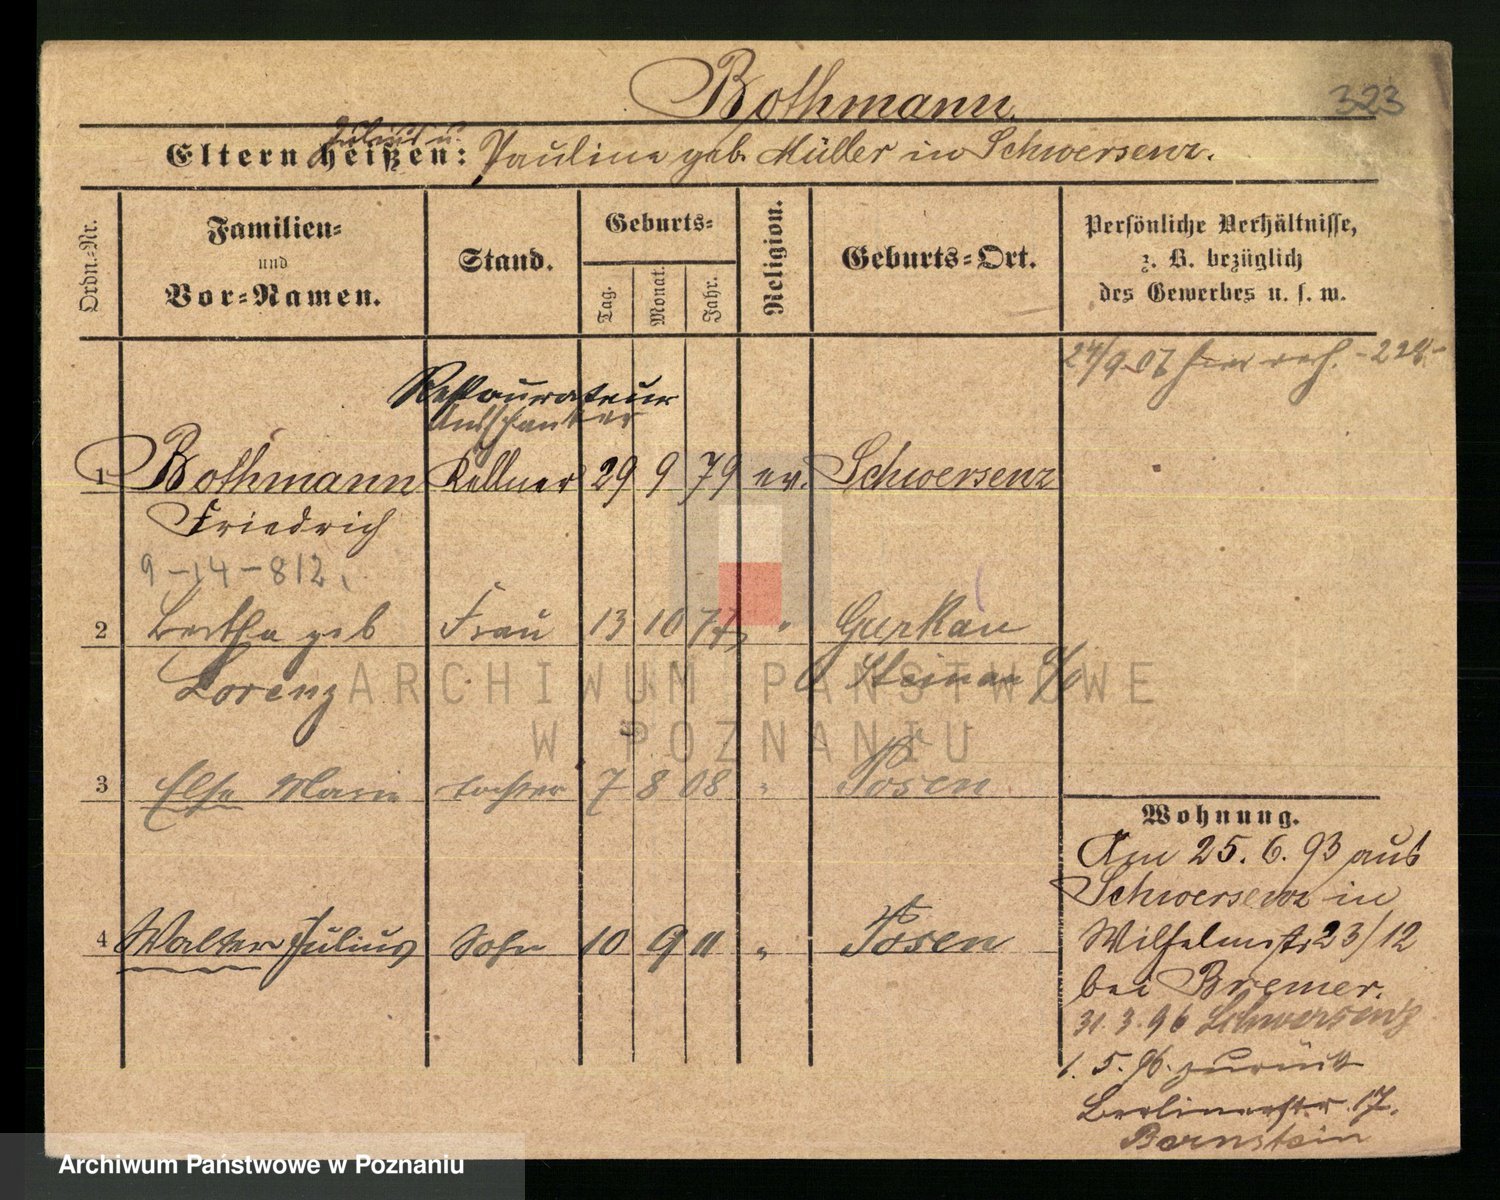 Bothmann.
323
Julius u.
Eltern heißen: Pauline geb. Müller in Schwersenz.
Ordn.-Nr.
Familien-
und
Vor-Namen.
Stand.
Geburts-
Tag.
Monat.
Jahr.
Religion.
Geburts-Ort.
Persönliche Verhältnisse,
z. B. bezüglich
des Gewerbes u. s. w.
24/9.07
Restaurateur
1 Bothmann Kellner 29 9 79 ev. Schwersenz
Friedrich
9-14-812.
2 Bertha geb Frau 13 10 77 " Gurkau
Lorenz Steinau
3 Else Marie Tochter 7 8 08 " Posen
4 Walter Julius Sohn 10 9 11 " Posen
Wohnung.
Am 25. 6. 93 aus
Schwersenz in
Wilhelmstr 23/12
bei Bremer.
31.3.96 Schwersenz
1. 5. 96. zurück
Berlinerstr. 17.
Bernstein
ARCHIWUM PAŃSTWOWE
W POZNANIU
Archiwum Państwowe w Poznaniu